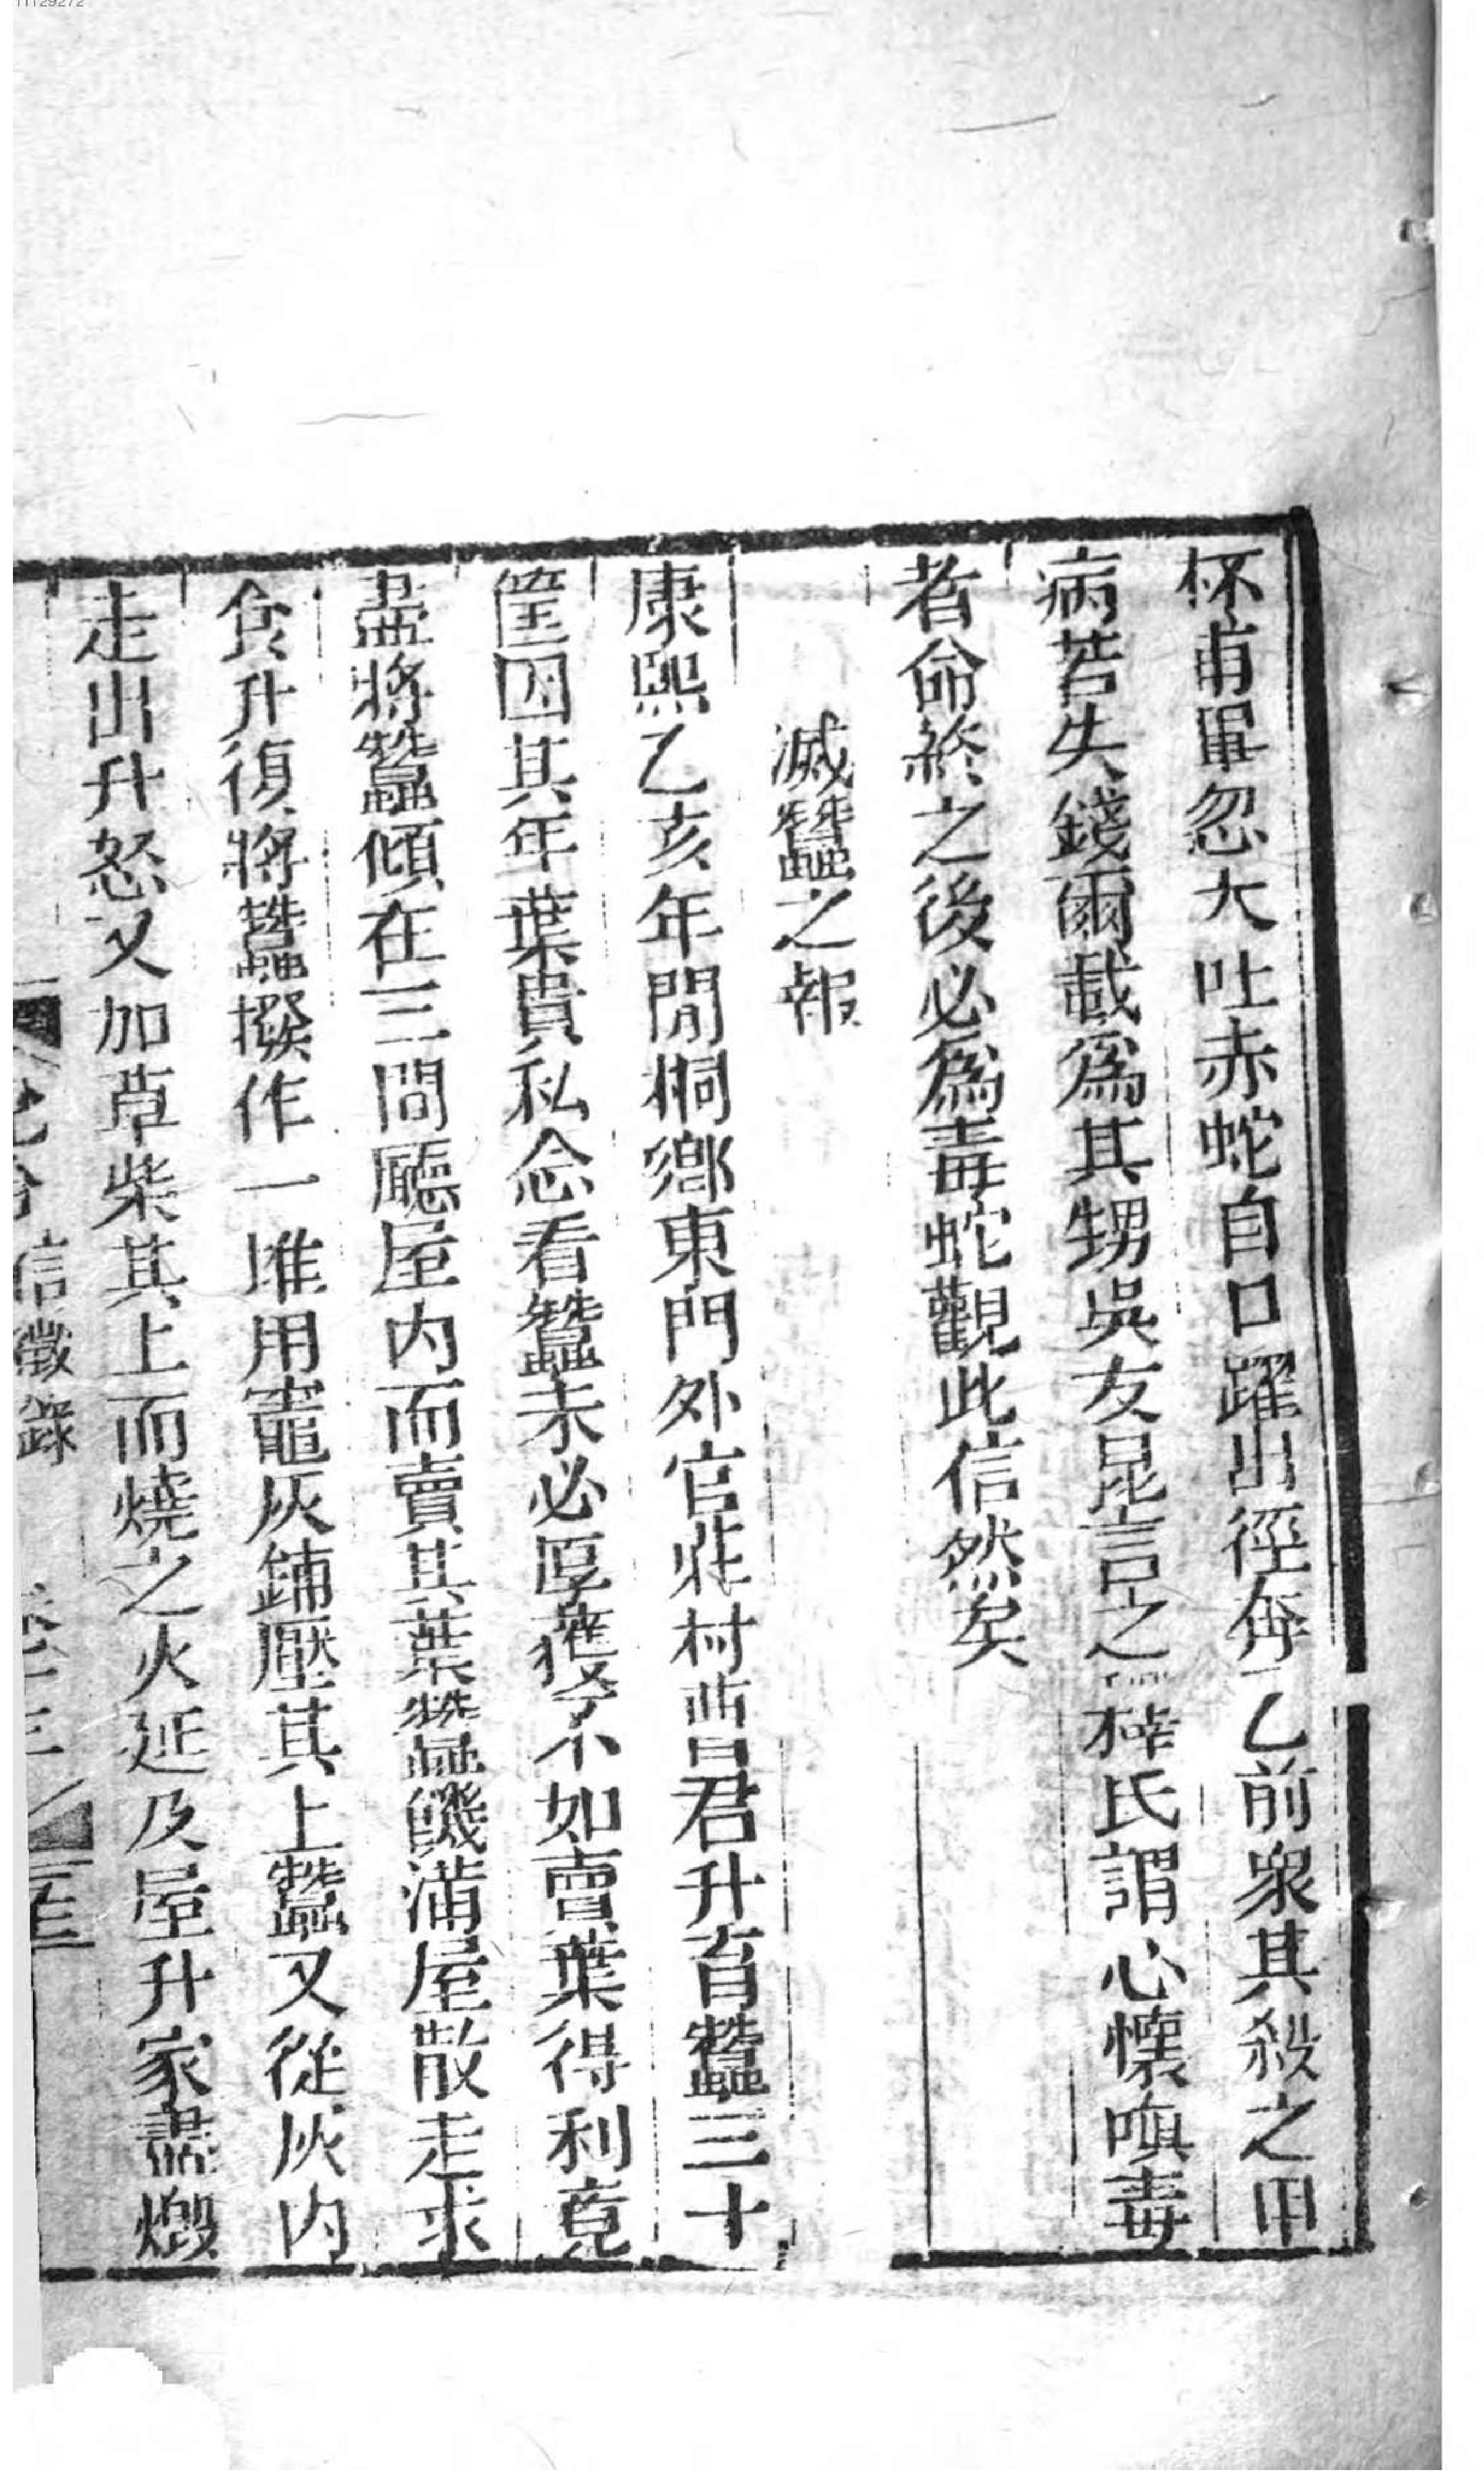 11129272
杯甫畢忽大吐赤蛇自口躍出徑奔乙前衆共殺之甲
病若失錢爾載爲其甥吳友昆言之釋氏謂心懷嗔毒
者命終之後必爲毒蛇觀此信然矣
滅蠶之報
康熙乙亥年閒桐鄉東門外官莊村曹君升育蠶三十
筐因其年葉貴私念看蠶未必厚獲不如賣葉得利竟
盡將蠶傾在三間廳屋内而賣其葉蠶饑滿屋散走求
食升復將蠶撥作一堆用竈灰鋪壓其上蠶又從灰内
走出升怒又加草柴其上而燒之火延及屋升家盡燬
信徵錄